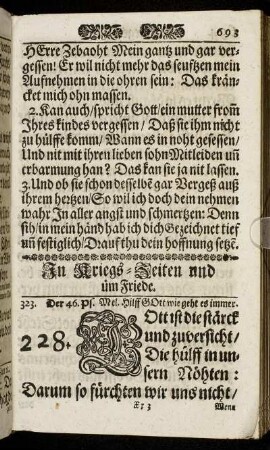 693
HErre Zebaoht Mein gantz und gar ver-
gessen! Er wil nicht mehr das seufftzen mein
Aufnehmen in die ohren sein: Das krän-
cket mich ohn massen.
2. Kan auch/spricht Gott/ein mutter from̃
Ihres kindes vergessen/ Daß sie ihm nicht
zu hülffe kom̃/ Wann es in noht gesessen/
Und nit mit ihren lieben sohn Mitleiden uñ
erbarmung han? Das kan sie ja nit lassen.
3. Und ob sie schon desselbē gar Vergeß auß
ihrem hertzen/ So wil ich doch dein nehmen
wahr In aller angst und schmertzen: Denn
sih/ in mein händ hab ich dich Gezeichnet tief
uñ festiglich/ Drauf thu dein hoffnung setzē.
In Kriegs-Zeiten und
üm Friede.
323. Der 46. Ps. Mel. Hilff GOtt wie geht es immer.
228. GOtt ist die stärck
und zuversicht/
Die hülff in un-
sern Nöhten:
Darum so fürchten wir uns nicht/
Wenn